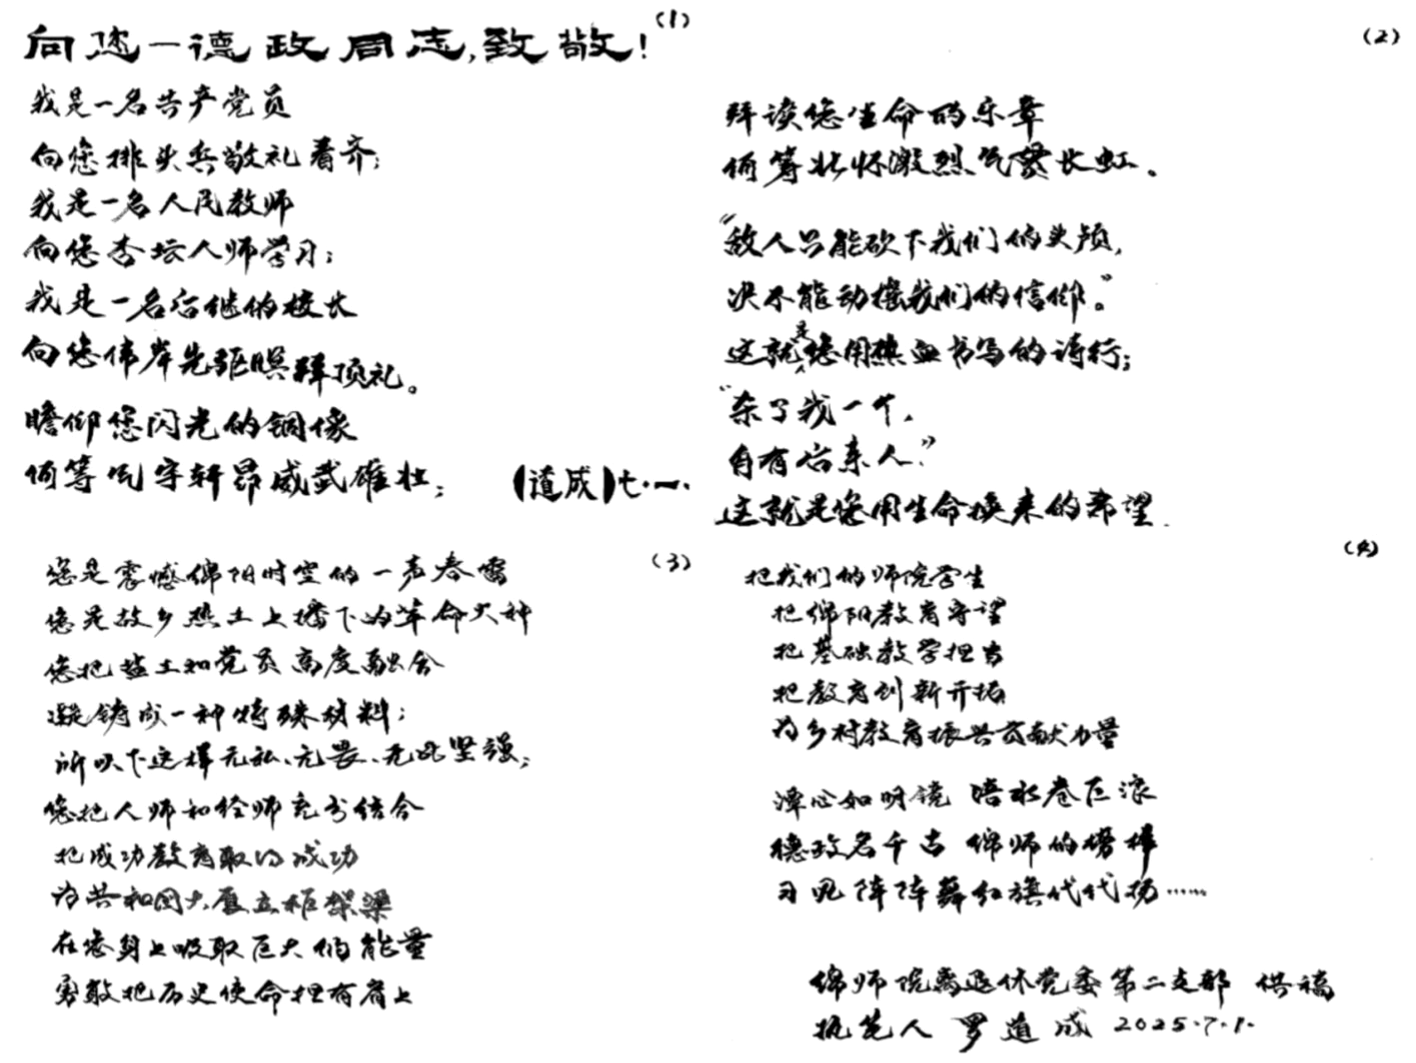 (1)
向您一德政同志,致敬!
我是一名共产党员
向您排头兵敬礼看齐;
我是一名人民教师
向您杏坛人师学习;
我是一名后继的校长
向您伟岸先驱瞑拜顶礼。
瞻仰您闪光的铜像
何等气宇轩昂威武雄壮;
(道成)七·一·
(2)
拜读您生命的乐章
何等壮怀激烈气贯长虹。
"敌人只能砍下我们的头颅,
决不能动摇我们的信仰。"
这就是您用热血书写的诗行;
"杀了我一个,
自有后来人。"
这就是您用生命换来的希望.
(3)
您是震撼绵阳时空的一声春雷
您是故乡热土上播下的革命火种
您把盐土和党员高度融合
凝铸成一种特殊材料;
所以下这样无私、无畏、无比坚强;
您把人师和经师充分结合
把成功教育取得成功
为共和国大厦立柱架梁
在您身上吸取巨大的能量
勇敢把历史使命担在肩上
(4)
把我们的师院学生
把绵阳教育守望
把基础教学担当
把教育创新开拓
为乡村教育振兴贡献力量
潭心如明镜 涪水卷巨浪
德政名千古 绵师的榜样
习风阵阵舞红旗代代扬……
绵师院离退休党委第二支部 供稿
执笔人 罗道成 2025.7.1.